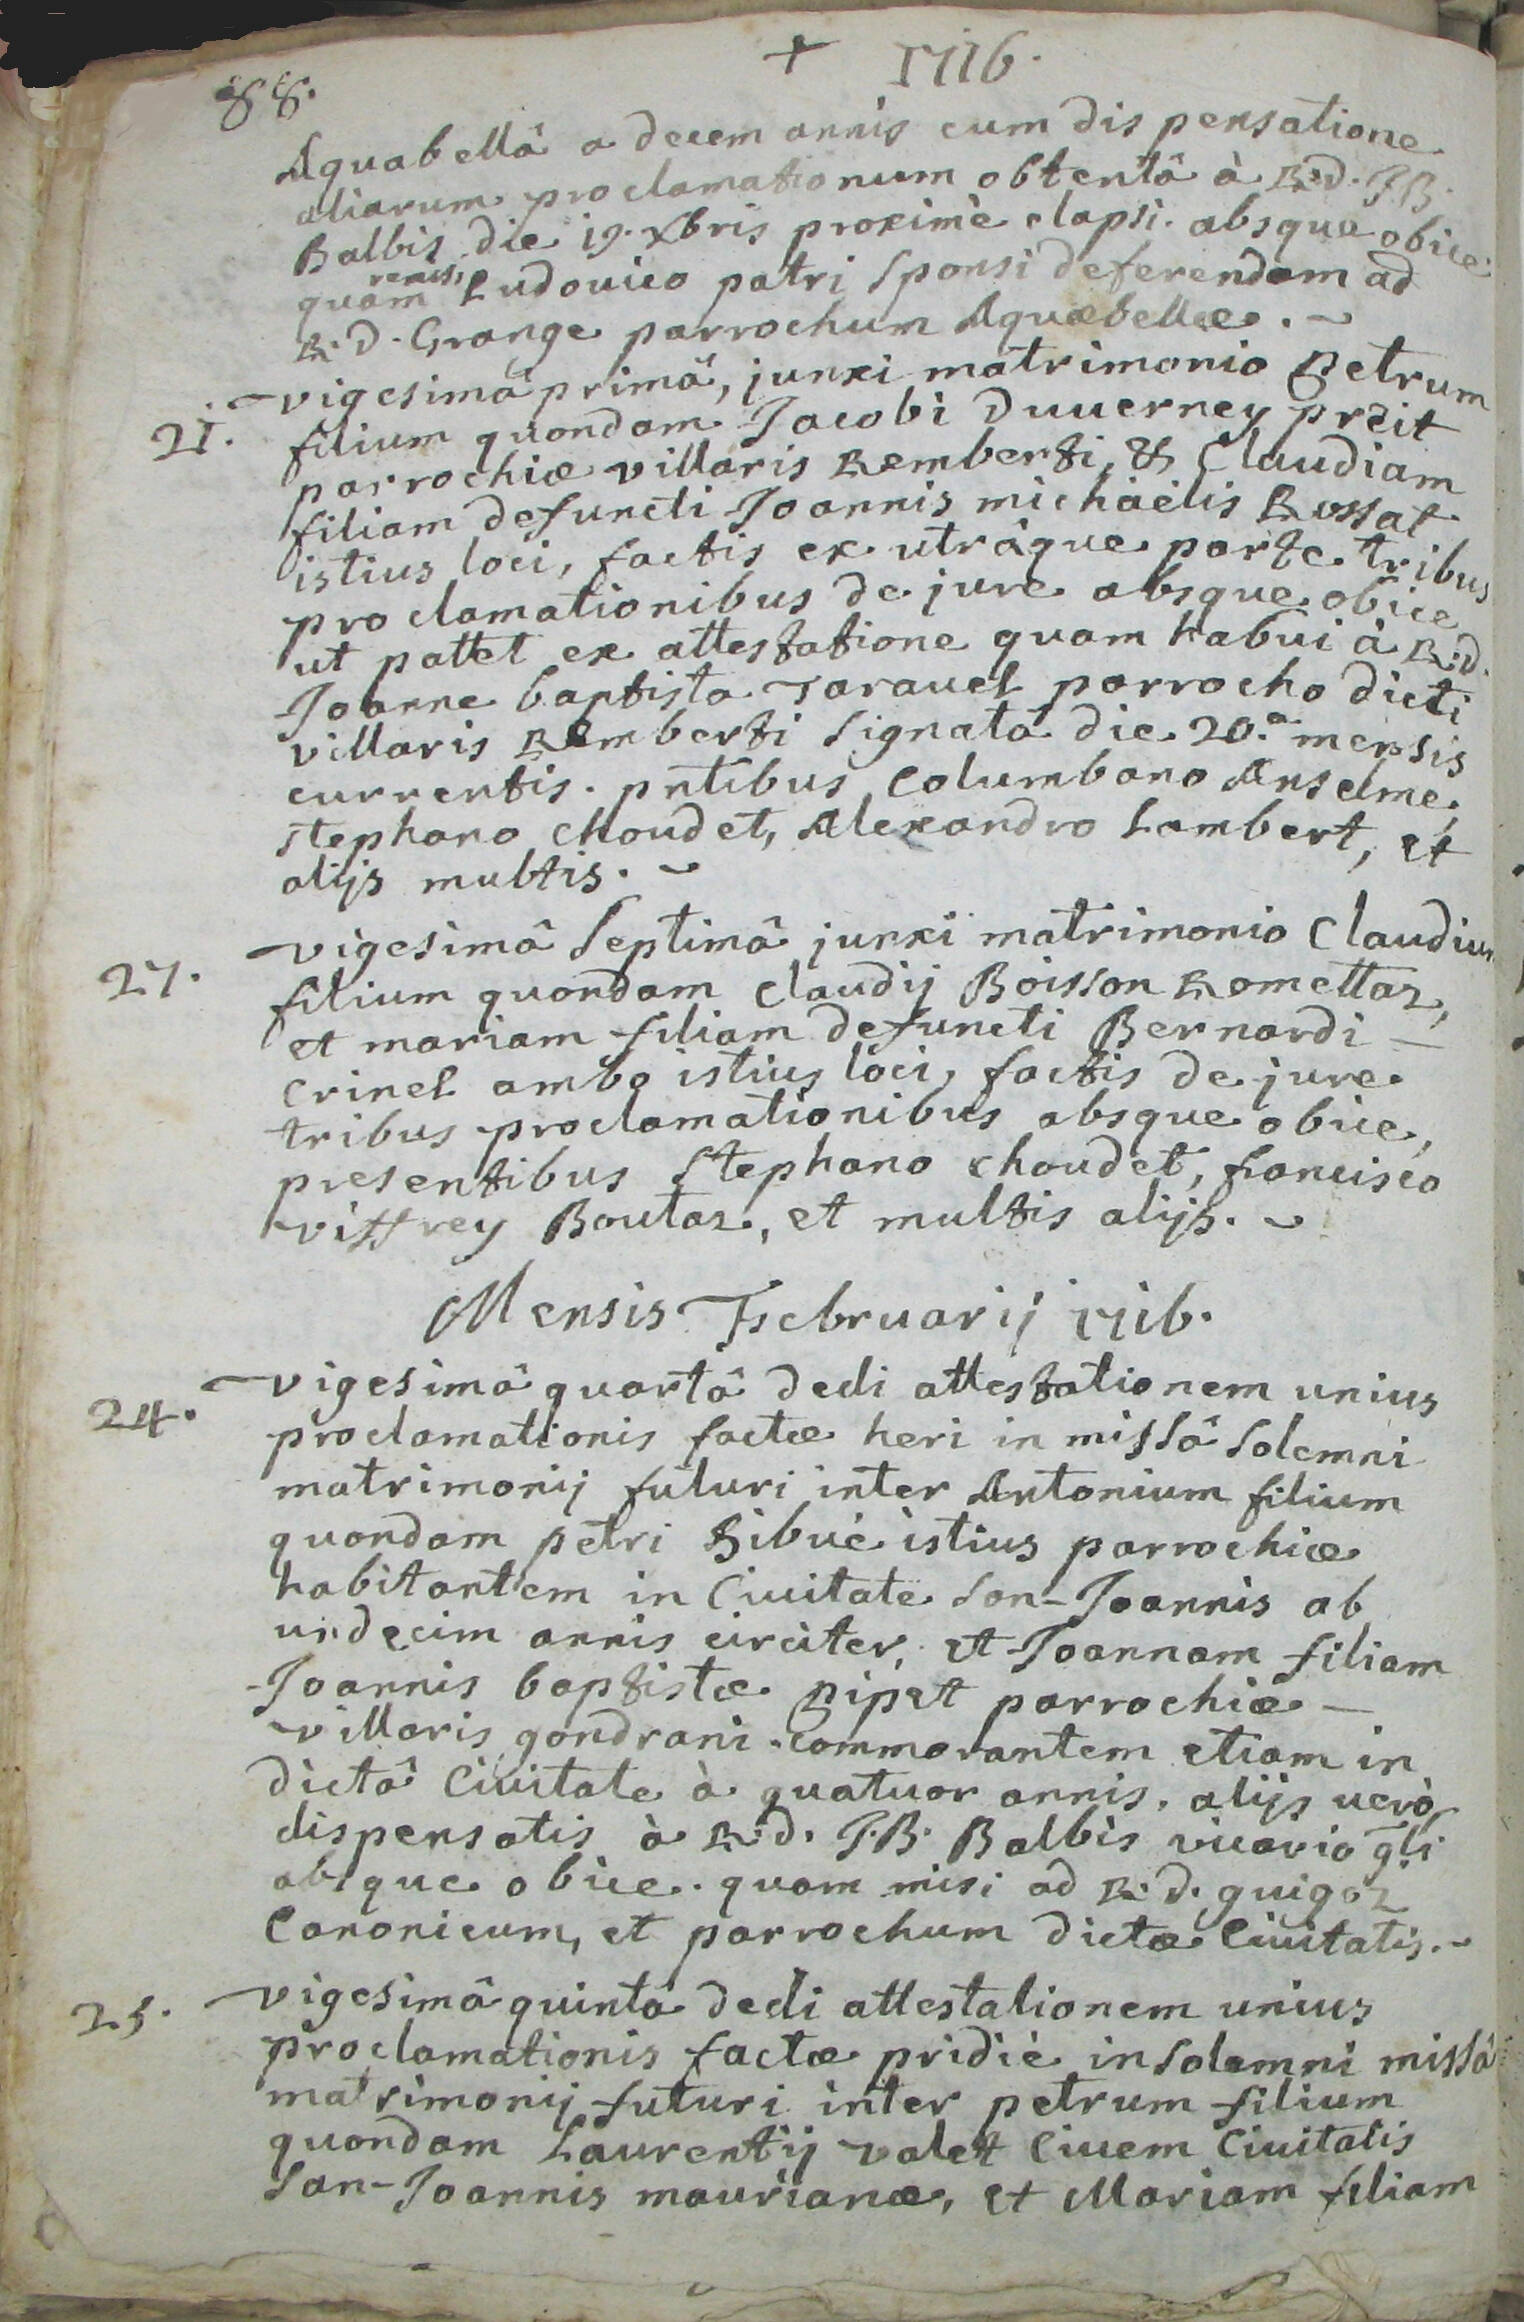 + 1716.
88.
Aquabellâ a decem annis cum dispensatione
aliarum proclamationum obtentâ à R.d. J.B.
Balbis die 19. Xbris proximè elapsi. absque obice.
quam remisi Ludovico patri Sponsi deferendam ad
R.D. Grange parrochum Aquæbellæ. ~
21. vigesimâ primâ, junxi matrimonio Petrum
filium quondam Jacobi Duuerney prdit
parrochiæ villaris Remberti, & Claudiam
filiam defuncti Joannis michaëlis Rossat
istius loci, factis ex utrâque parte tribus
proclamationibus de jure absque obice
ut pattet ex attestatione quam habui à R.d.
Joanne baptista Taravel parrocho dicti
villaris Remberti Signatâ die 20.a mensis
currentis. pntibus Columbano Anselme,
Stephano Choudet, Alexandro Lambert, et
alijs multis. ~
27. vigesimâ Septimâ junxi matrimonio Claudium
filium quondam Claudij Boisson Romettaz,
et mariam filiam defuncti Bernardi —
Crinel ambo istius loci, factis de jure
tribus proclamationibus absque obice,
presentibus Stephano choudet, francisco
viffrey Boutaz, et multis alijs. ~
Mensis Februarij 1716.
24. vigesimâ quartâ dedi attestationem unius
proclamationis factæ heri in missâ Solemni
matrimonij futuri inter Antonium filium
quondam petri Sibué istius parrochiæ
habitantem in Civitate San-Joannis ab
undecim annis circiter, et Joannam filiam
Joannis baptistæ Pipet parrochiæ —
villaris gondrani commorantem etiam in
dictâ Civitate à quatuor annis. alijs uerò
dispensatis à R.d. J.B. Balbis vicario gli
absque obice. quam misi ad R.d. guigoz
Canonicum, et parrochum dictæ Civitatis. ~
25. vigesimâ quintâ dedi attestationem unius
proclamationis factæ pridiè in Solemni missâ
matrimonij futuri inter petrum filium
quondam Laurentij valet Ciuem Ciuitatis
San-Joannis maurianæ, et Mariam filiam